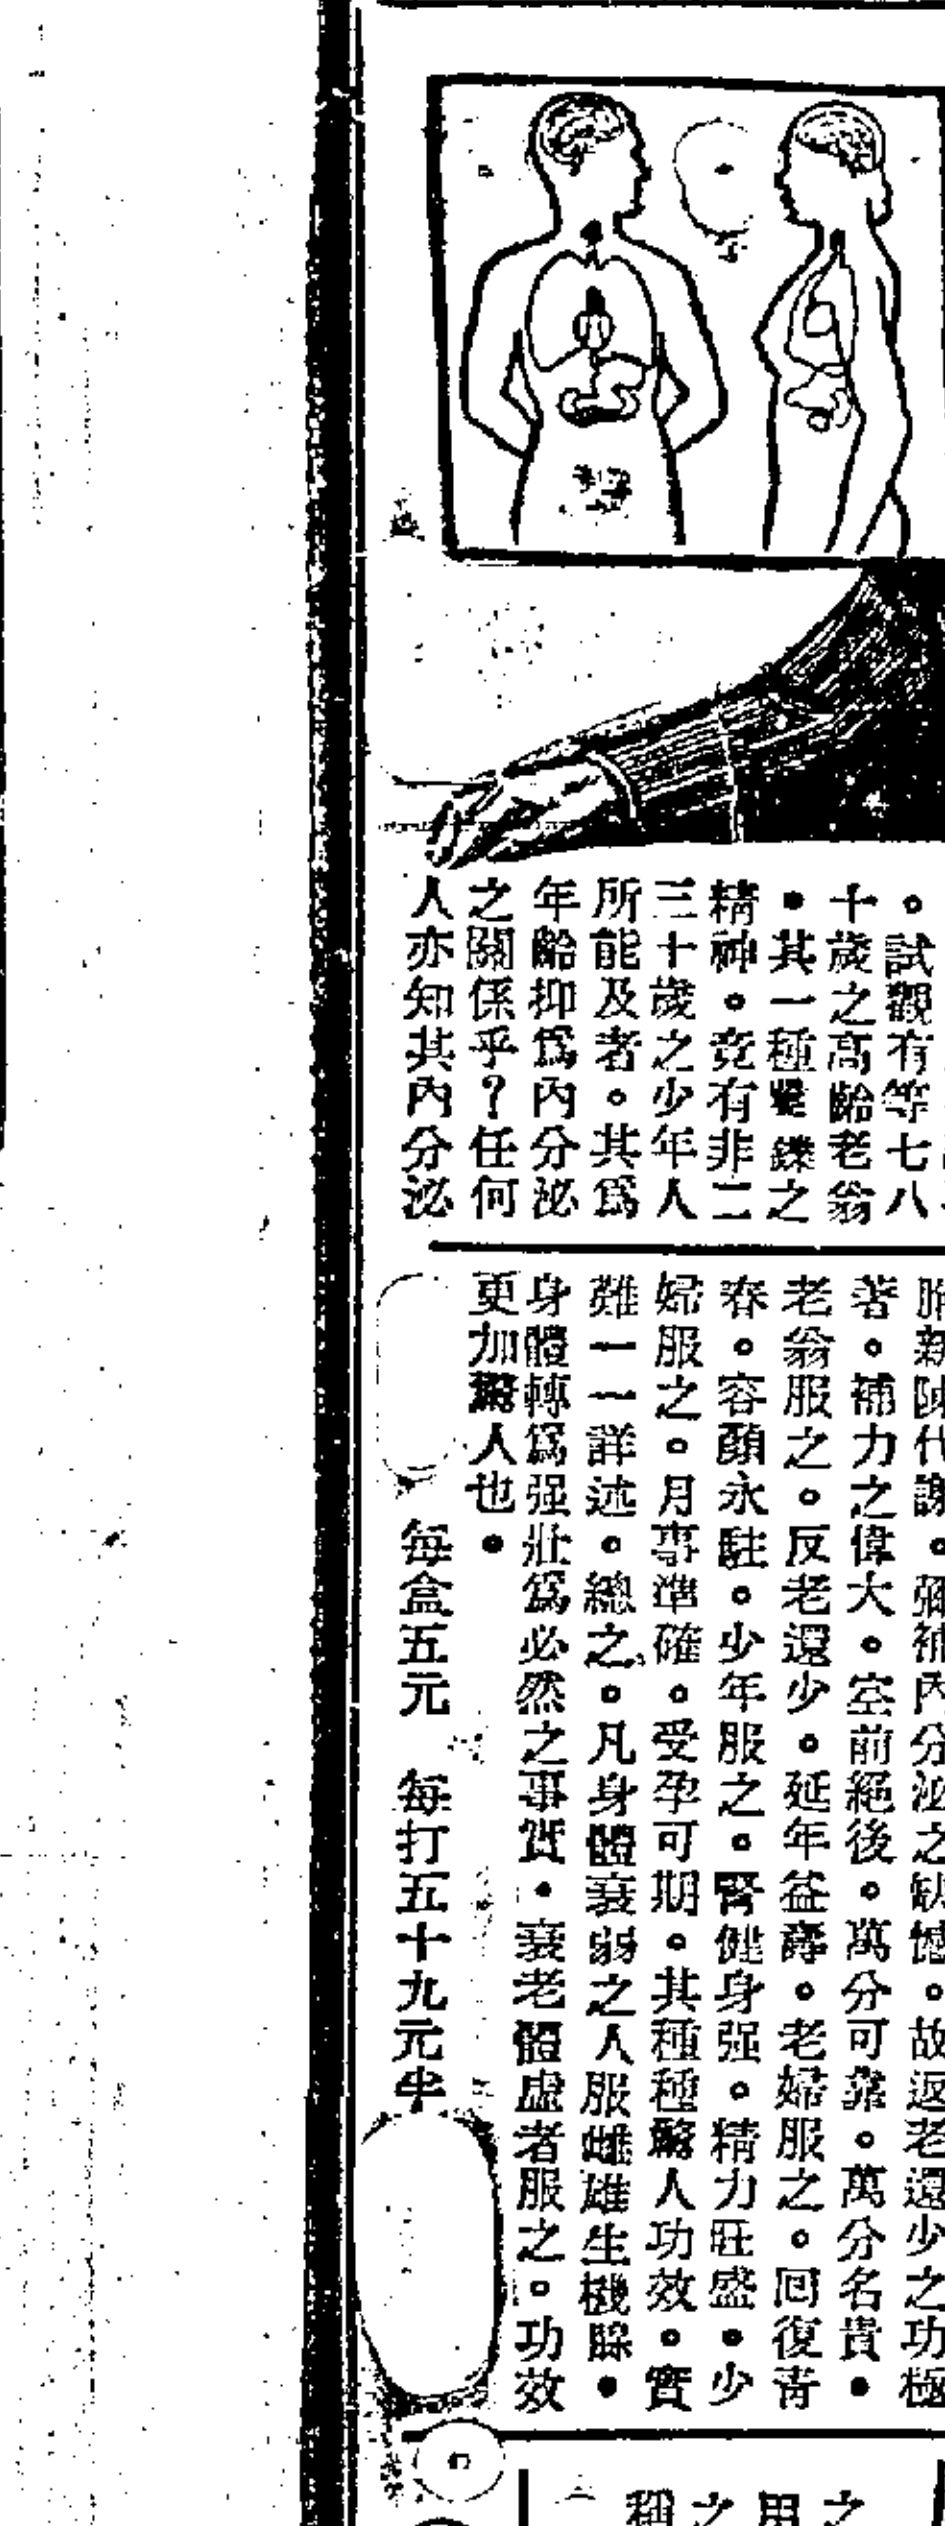 。試觀有等七八
十歲之高齡老翁
。其一種矍鑠之
精神。竟有非二
三十歲之少年人
所能及者。其爲
年齡抑爲內分泌
之關係乎？任何
人亦知其內分泌
新陳代謝。彌補內分泌之缺憾。故返老還少之功極
著。補力之偉大。空前絕後。萬分可靠。萬分名貴。
老翁服之。反老還少。延年益壽。老婦服之。回復青
春。容顏永駐。少年服之。腎健身强。精力旺盛。少
婦服之。月事準確。受孕可期。其種種驚人功效。實
難一一詳述。總之。凡身體衰弱之人服雌雄生機。
身體轉爲强壯爲必然之事實。衰老體虛者服之。功效
更加驚人也。
每盒五元　每打五十九元半
之
用
之
稱